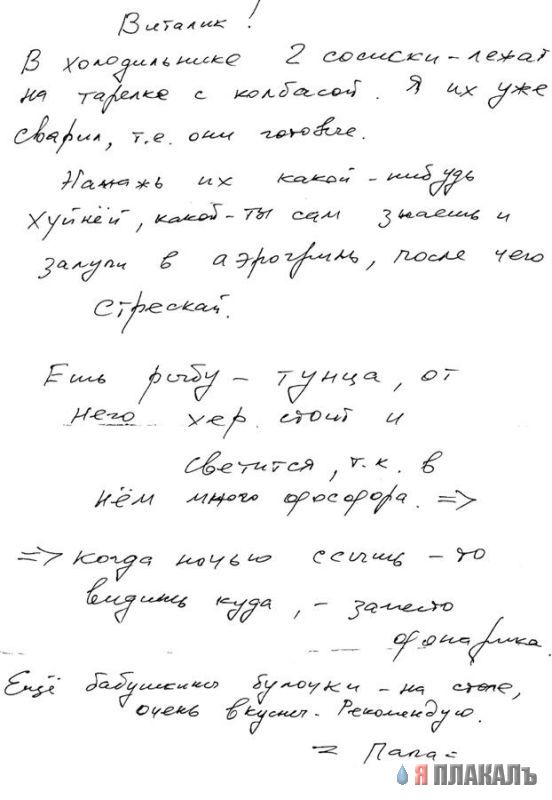 Виталик!
В холодильнике 2 сосиски – лежат
на тарелке с колбасой. Я их уже
сварил, т.е. они готовые.
Намажь их какой-нибудь
хуйнёй, какой – ты сам знаешь и
залупи в аэрогриль, после чего
стрескай.
Ешь рыбу – тунца, от
него хер стоит и
светится, т.к. в
нём много фосфора. =>
=> когда ночью ссышь – то
видишь куда, – заместо
фонарика.
Ещё бабушкины булочки – на столе,
очень вкусны. Рекомендую.
= Папа =
Я ПЛАКАЛЪ